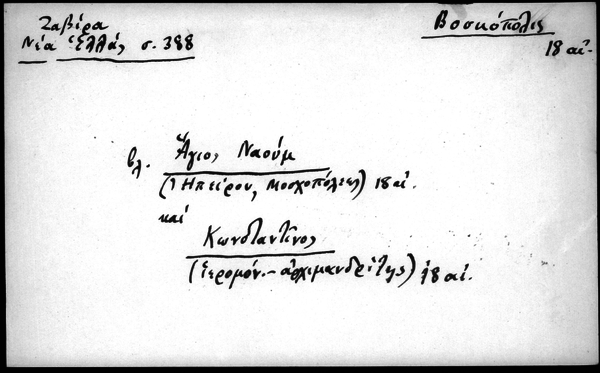 Ζαβίρα
Νέα Ἑλλάς σ. 388
Βοσκόπολις
18 αἰ.
βλ. Ἅγιος Ναούμ
(Ἠπείρου, Μοσχοπόλεως) 18 αἰ.
καί
Κωνσταντῖνος
(ἱερομόν. - ἀρχιμανδρίτης) 18 αἰ.